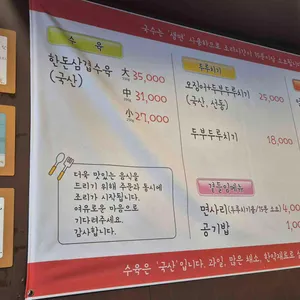 국수는 '생면' 사용하므로 조리시간이
수육
한돈삼겹수육
(국산)
大 35,000
中 31,000
小 27,000
두루치기
오징어+두부두루치기 25,000
(국산, 산동)
두부두루치기 18,000
더욱 맛있는 음식을
드리기 위해 주문과 동시에
조리가 시작됩니다.
여유로운 마음으로
기다려주세요.
감사합니다.
곁들임메뉴
면사리
공기밥
수육은 '국산'입니다. 과일, 많은 채소, 한약재로